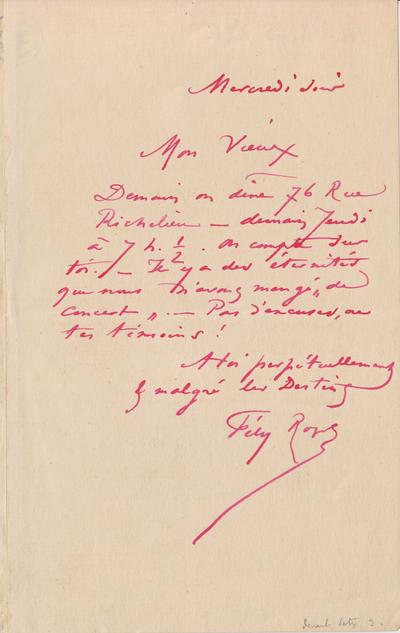 Mercredi soir
Mon Vieux
Demain on dine 76 Rue
Richelieu — demain Jeudi
à 7 h. ½. On compte sur
toi. — Il y a des éternités
que nous n'avons mangé „de
concert". — Pas d'excuses, ou
tes témoins !
A toi perpétuellement
& malgré les Destins
Fély Rops